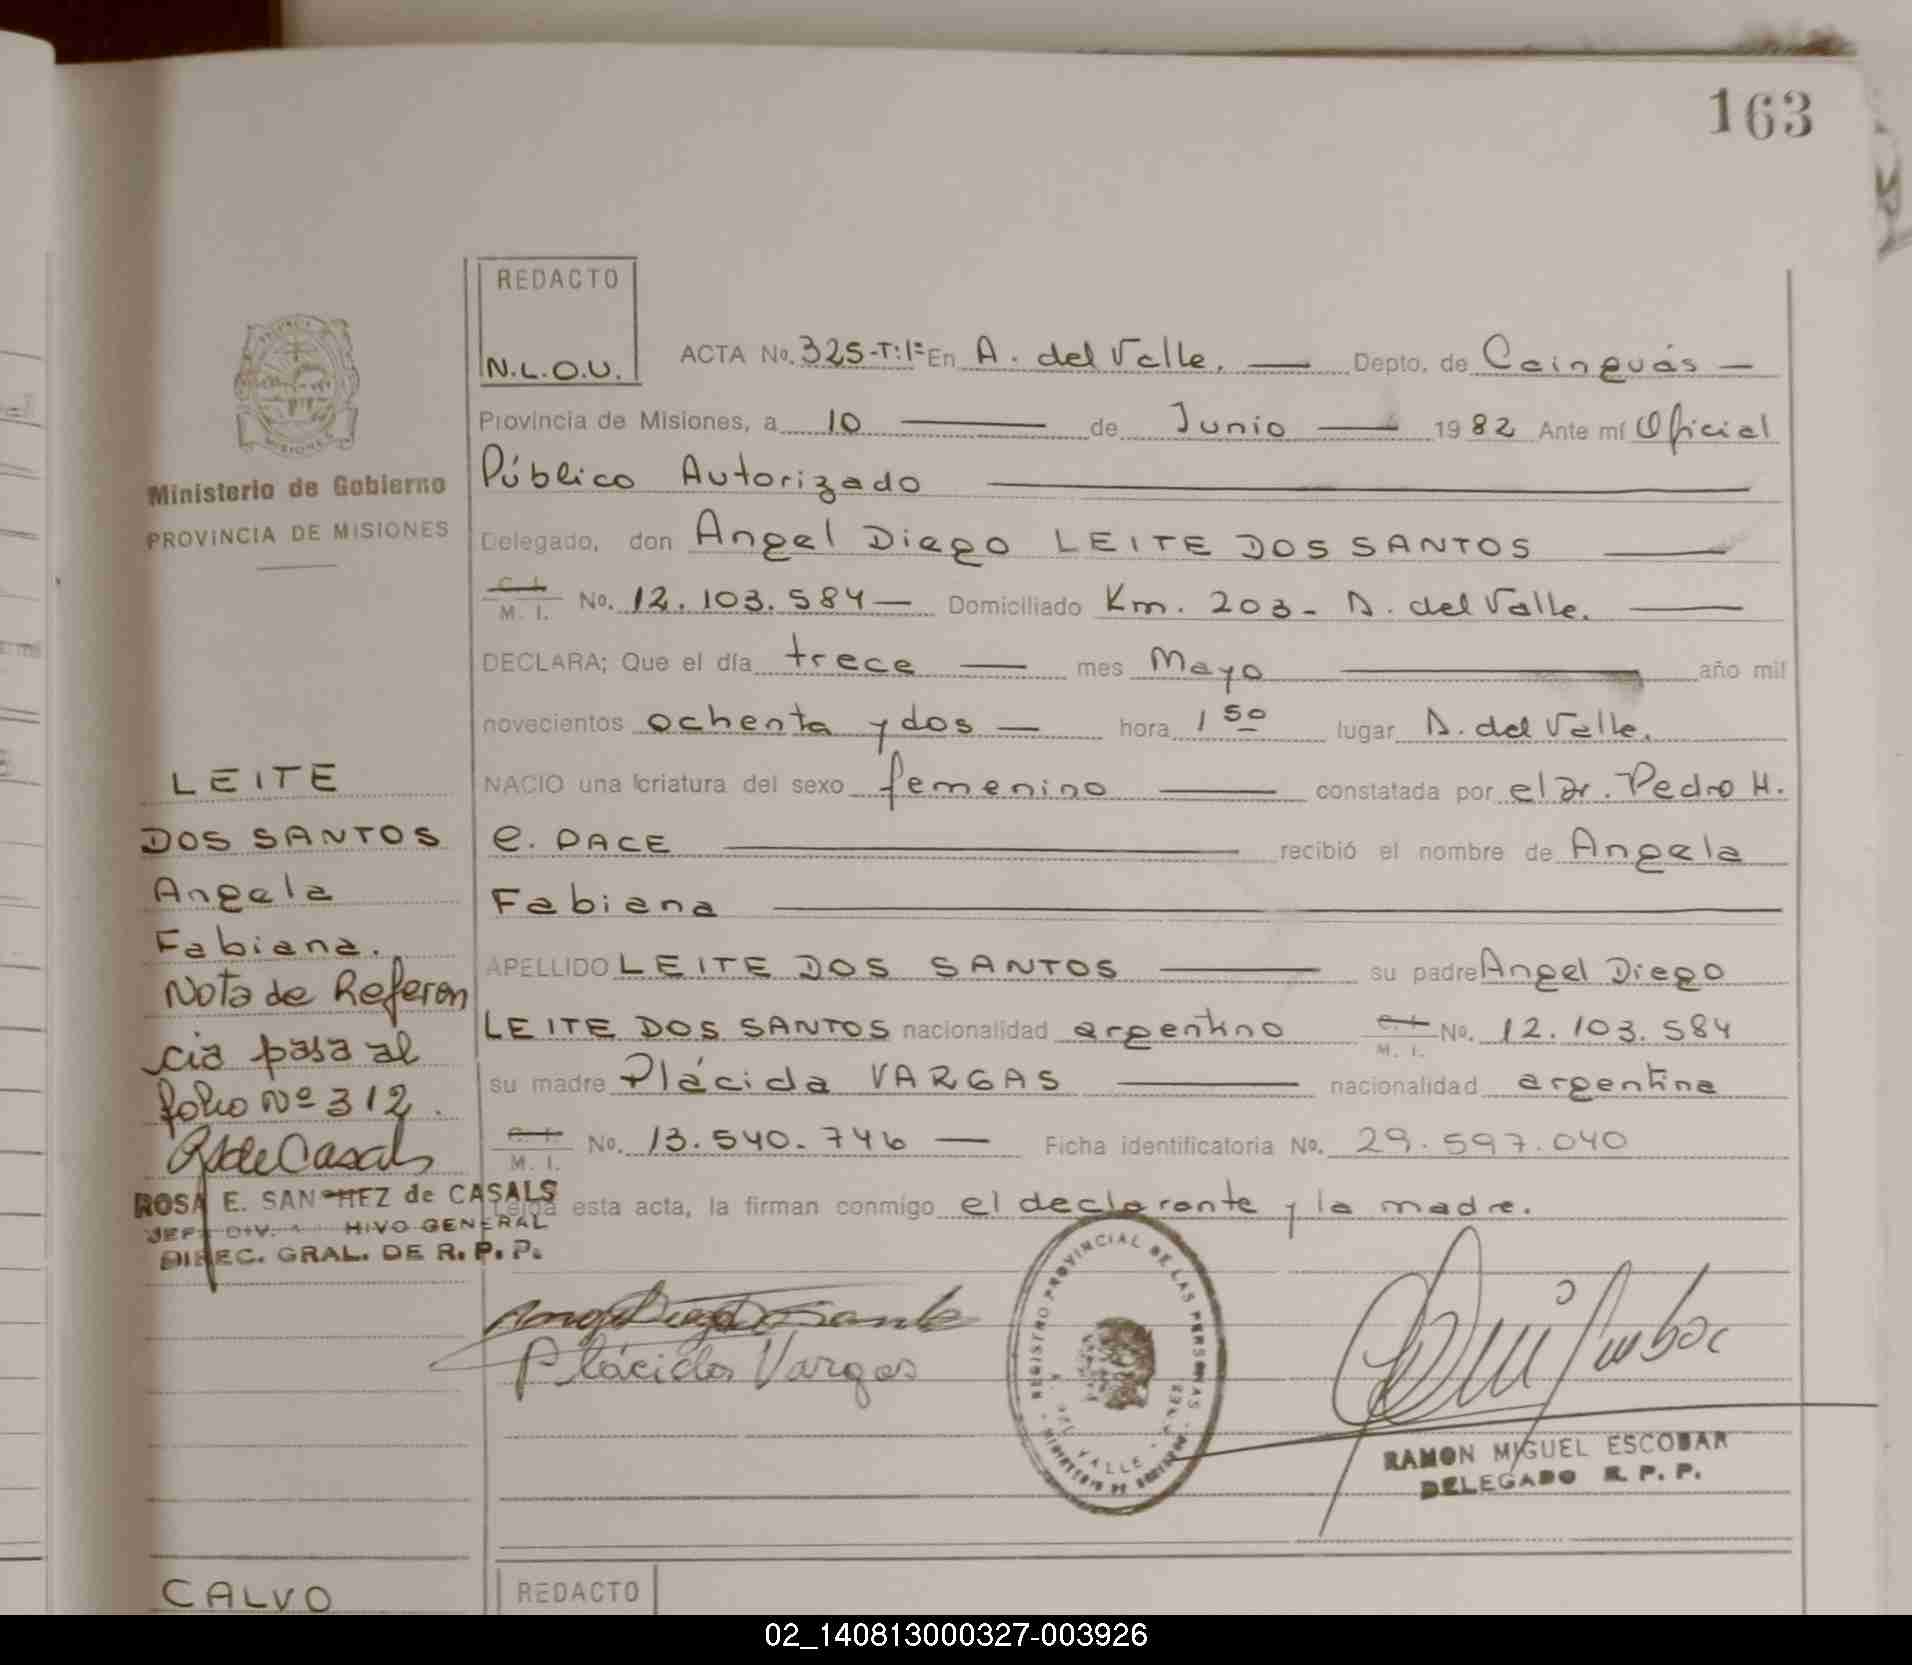 163
REDACTO
N.L.O.U.
ACTA No. 325-T:1º En A. del Valle. Depto. de Cainguás
Provincia de Misiones, a 10 de Junio 1982 Ante mí Oficial
Público Autorizado
Delegado, don Angel Diego LEITE DOS SANTOS
C. I. M. I. No. 12.103.584 Domiciliado Km. 203- A. del Valle.
DECLARA; Que el día trece mes Mayo año mil
novecientos ochenta y dos hora 1 50 lugar A. del Valle.
NACIO una criatura del sexo femenino constatada por el Dr. Pedro H.
E. PACE recibió el nombre de Angela
Fabiana
APELLIDO LEITE DOS SANTOS su padre Angel Diego
LEITE DOS SANTOS nacionalidad argentino C. I. M. I. No. 12.103.584
su madre Plácida VARGAS nacionalidad argentina
C. I. M. I. No. 13.540.746 Ficha identificatoria No. 29.597.040
Leída esta acta, la firman conmigo el declarante y la madre.
Plácida Vargas
REGISTRO PROVINCIAL DE LAS PERSONAS
DEL VALLE
MINISTERIO DE GOBIERNO
RAMON MIGUEL ESCOBAR
DELEGADO R. P. P.
PROVINCIA
MISIONES
Ministerio de Gobierno
PROVINCIA DE MISIONES
LEITE
DOS SANTOS
Angela
Fabiana.
Nota de Referen
cia pasa al
folio Nº 312.
RSdeCasals
ROSA E. SANCHEZ de CASALS
JEFA DIV. ARCHIVO GENERAL
DIREC. GRAL. DE R. P. P.
CALVO
REDACTO
02_140813000327-003926